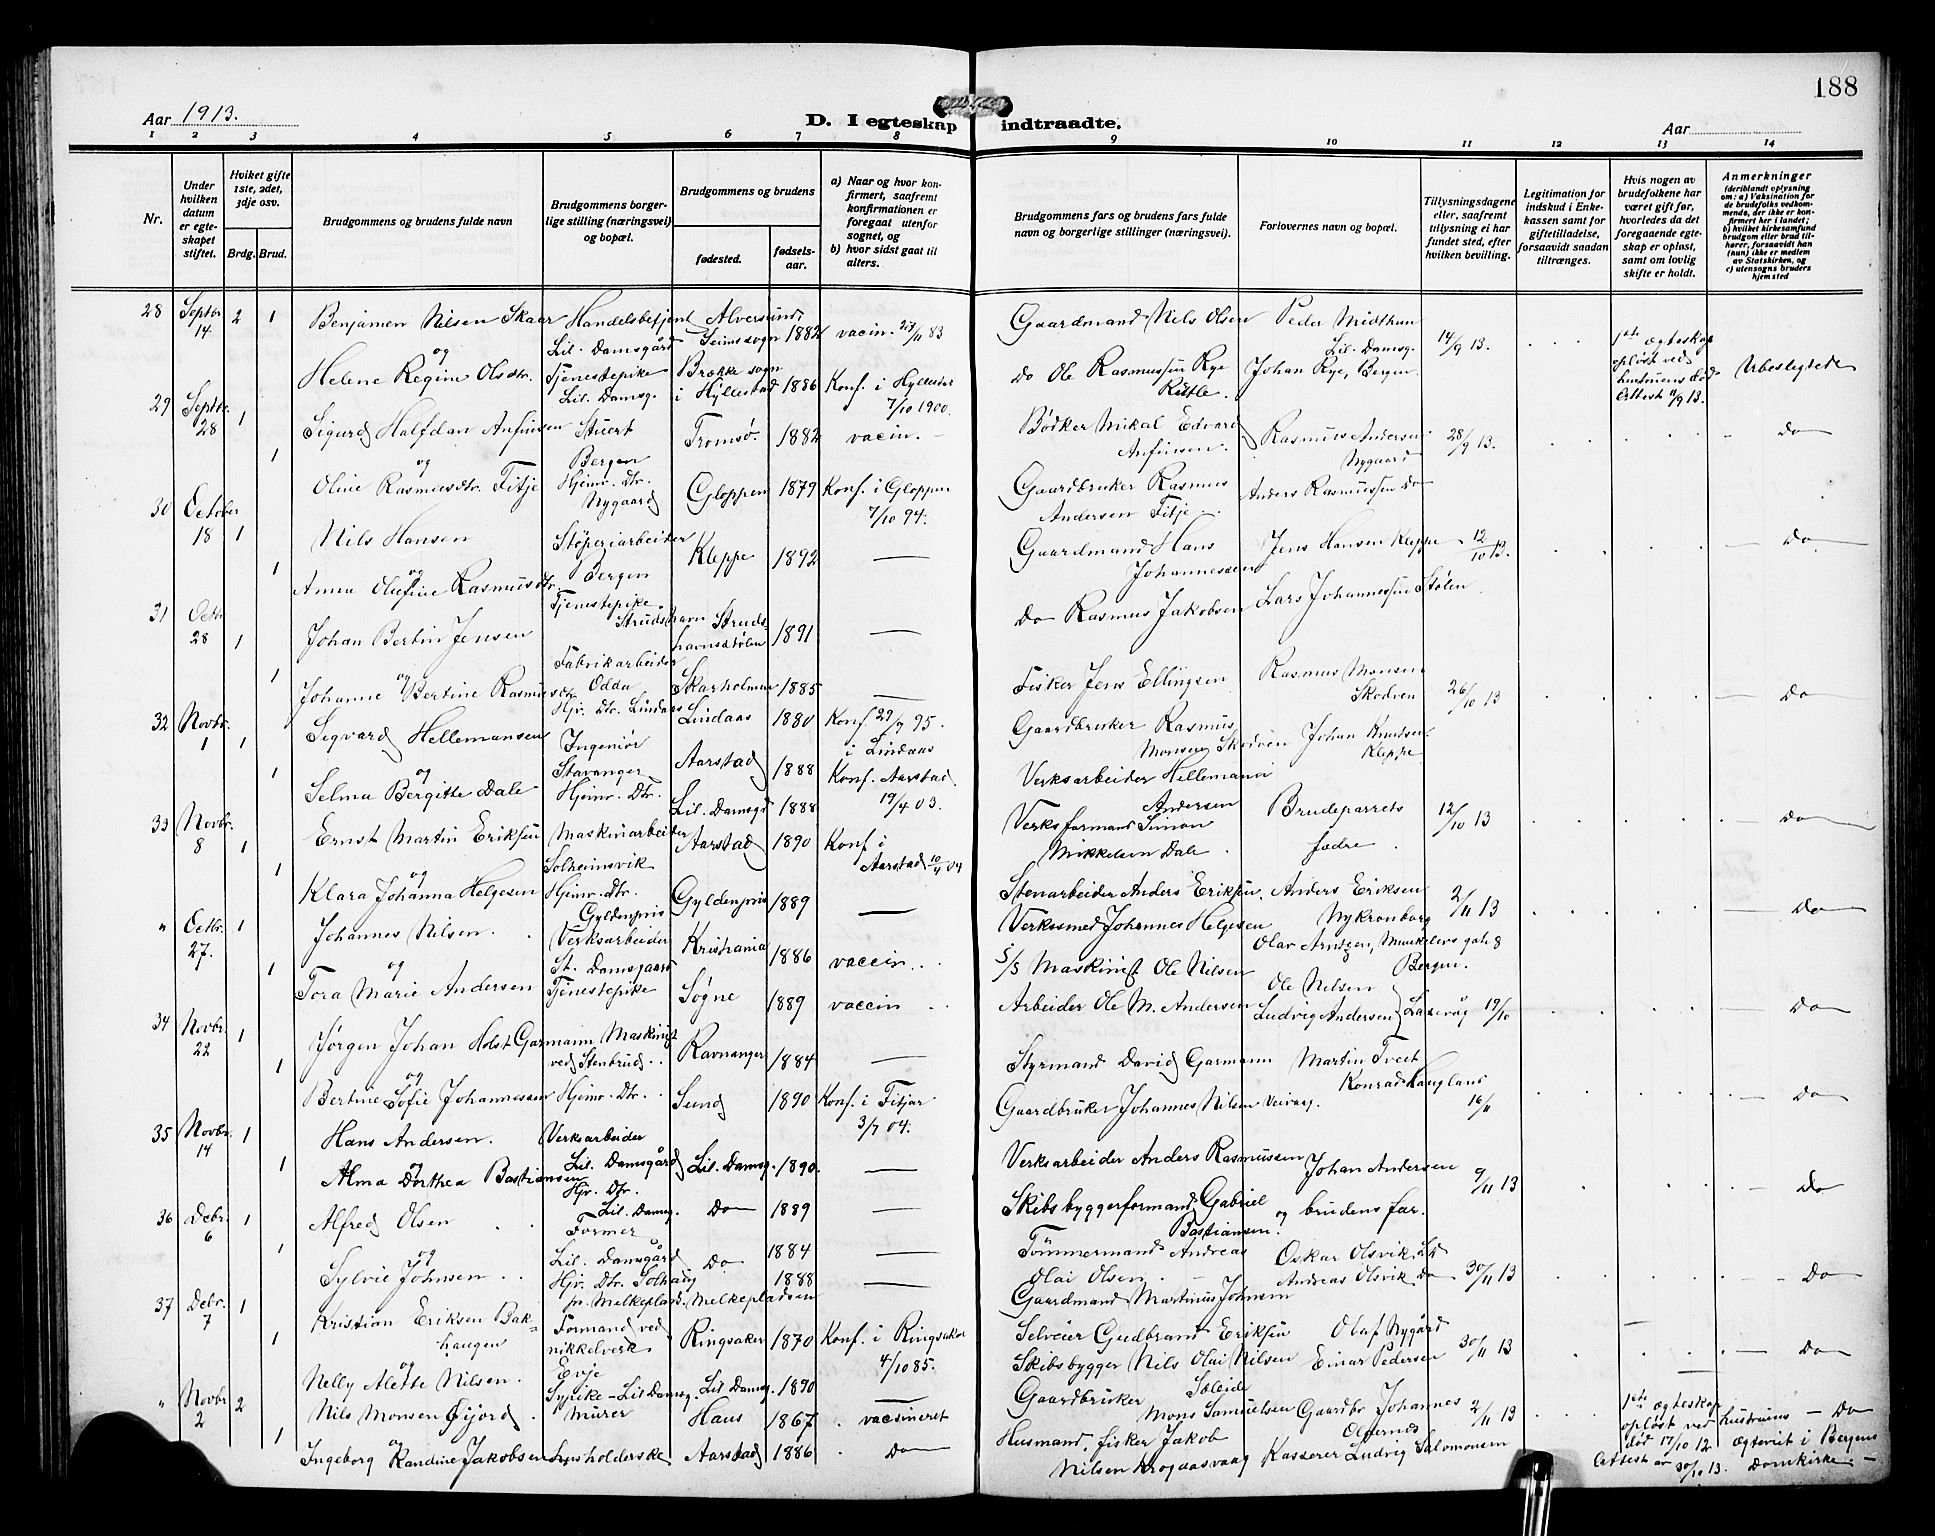 188
Aar 1913.
D. I egteskap indtraadte.
Aar
1 2 3 4 5 6 7 8 9 10 11 12 13 14
Nr.
Under hvilken datum er egteskapet stiftet.
Hvilket gifte 1ste, 2det, 3dje osv.
Brdg. Brud.
Brudgommens og brudens fulde navn
Brudgommens borgerlige stilling (næringsvei) og bopæl.
Brudgommens og brudens
fødested.
fødselsaar.
a) Naar og hvor konfirmert, saafremt konfirmationen er foregaat utenfor sognet, og
b) hvor sidst gaat til alters.
Brudgommens fars og brudens fars fulde navn og borgerlige stillinger (næringsvei).
Forlovernes navn og bopæl.
Tillysningsdagene eller, saafremt tillysning ei har fundet sted, efter hvilken bevilling.
Legitimation for indskud i Enkekassen samt for giftetilladelse, forsaavidt saadan tiltrænges.
Hvis nogen av brudefolkene har været gift før, hvorledes da det foregaaende egteskap er opløst, samt om lovlig skifte er holdt.
Anmerkninger (deriblandt oplysning om: a) Vaksination for de brudefolks vedkommende, der ikke er konfirmert her i landet; b) hvilket kirkesamfund brudgom eller brud tilhører, forsaavidt han (hun) ikke er medlem av Statskirken, og c) utensogns bruders hjemsted
28 Septbr. 14 2 1 Benjamin Nilsen Skaar Handelsbetjent Lil. Damsgård Alversund Seims sogn 1882 vacin. 27/11 83 Gaardmand Nils Olsen Peder Midthun Lil. Damsg. 14/9 13. 1ste ægteskap opløst ved hustruens død Attest 9/9 13. Ubeslegtede
og Helene Regine Olsdtr. Tjenestepike Lil. Damsg. Brække sogn i Hyllestad 1886 Konf. i Hyllestad 7/10 1900. Do Ole Rasmussen Rye Rutle. Johan Rye, Bergen.
29 Septbr. 28 1 Sigurd Halfdan Anfinsen Stuert Bergen Tromsø. 1882 vacin. Bødker Mikal Edvard Anfinsen. Rasmus Andersen Nygaard 28/9 13. Do
1 og Oline Rasmusdtr. Fitje Hjemv. Dtr. Nygaard Gloppen 1879 Konf. i Gloppen 7/10 94. Gaardbruker Rasmus Andersen Fitje. Anders Rasmussen Do
30 October 18 1 Nils Hansen Støperiarbeider Bergen Kleppe 1892 Gaardmand Hans Johannessen Jens Hansen Kleppe 12/10 13. Do
1 og Anna Olufine Rasmusdtr. Tjenestepike Strudshavn Strudshavnsstølen 1891 Do Rasmus Jakobsen Lars Johannessen Stølen
31 Octbr. 28 1 Johan Bertin Jensen Fabrikarbeider Odda Skarholmen 1885 Fisker Jens Ellingsen Rasmus Monsen Skodven 26/10 13 Do
1 og Johanne Bertine Rasmusdtr. Hjv. Dtr. Lindaas Lindaas 1880 Konf. 29/9 95. i Lindaas Gaardbruker Rasmus Monsen Skodven Johan Knudsen Kleppe
32 Novbr. 1 1 Sigvard Hellemansen Ingeniør Stavanger Aarstad 1888 Konf. Aarstad 19/4 03. Verksarbeider Hellemann Andersen Brudeparrets fædre 12/10 13 Do
1 og Selma Bergitte Dale Hjemv. Dtr. Lil. Damsgd 1888 Verksformand Simon Mikkelsen Dale
33 Novbr. 8 1 Ernst Martin Eriksen Maskinarbeider Solheimsvik Aarstad 1890 Konf. i Aarstad 10/4 04 Stenarbeider Anders Eriksen. Anders Eriksen Nykronborg 2/11 13 Do
1 og Klara Johanna Helgesen Hjemv. Dtr. Gyldenpris Gyldenpris 1889 Verksmed Johannes Helgesen Olav Arntzen, Munkelivs gate 8 Bergen.
" Octbr. 27. 1 Johannes Nilsen. Verksarbeider St. Damsgaard Kristiania 1886 vaccin. S/S Maskinist Ole Nilsen Ole Nilsen Laxevåg 19/10 Do
1 og Tora Marie Andersen Tjenestepike Søgne 1889 vaccin Arbeider Ole M. Andersen Ludvig Andersen
34 Novbr. 22 1 Jørgen Johan Holst Garmann Maskinist ved Stenbrud. Ravnanger 1884 Styrmand David Garmann Martin Tveit Konrad Haugland 16/11 Do
1 og Bertine Sofie Johannessen Hjemv. Dtr. Sund 1890 Konf. i Fitjar 3/7 04. Gaardbruker Johannes Nilsen
35 Novbr. 14 1 Hans Andersen. Verksarbeider Lil. Damsgård Lil. Damsg. 1890. Verksarbeider Anders Rasmussen Johan Andersen 9/11 13 Do
1 og Alma Dorthea Bastiansen Hjv. Dtr. Lil. Damsg. Do 1889 Skibsbyggerformand Gabriel Bastiansen. og brudens far.
36 Debr. 6 1 Alfred Olsen Former Lil. Damsgård Do 1884 Tømmermand Andreas Olai Olsen. Oskar Olsvik Ld 30/11 13 Do
1 og Sylvie Johnsen Hjv. Dtr. Solhaug pr. Melkeplads. Melkepladsen 1888 Gaardmand Martinus Johnsen Andreas Olsvik Do
37 Debr. 7 1 Kristian Eriksen Bakhaugen Formand ved nikkelverk. Evje Ringsaker 1870 Konf. i Ringsaker 4/10 85. Selveier Gudbrand Eriksen Olaf Nygård 30/11 13 Do
1 og Nelly Alette Nilsen. Sypike - Lil Damsg. Lil Damsg. 1890 Skibsbygger Nils Olai Nilsen Einar Pedersen
" Novbr 2 2 Nils Monsen Øijord. Murer Haus 1867 vacsineret Gaardbruker Mons Samuelsen Gaardbr Johannes 2/11 13 1ste ægteskap opløst ved hustruens død 17/10 12. Attest av 30/10 13. Do Ægteviet i Bergens Domkirke
1 og Ingeborg Randine Jakobsen Aarstad 1886 Do Husmand, fisker Jakob Nilsen Krogaasvaag Kasserer Ludvig Salomonsen